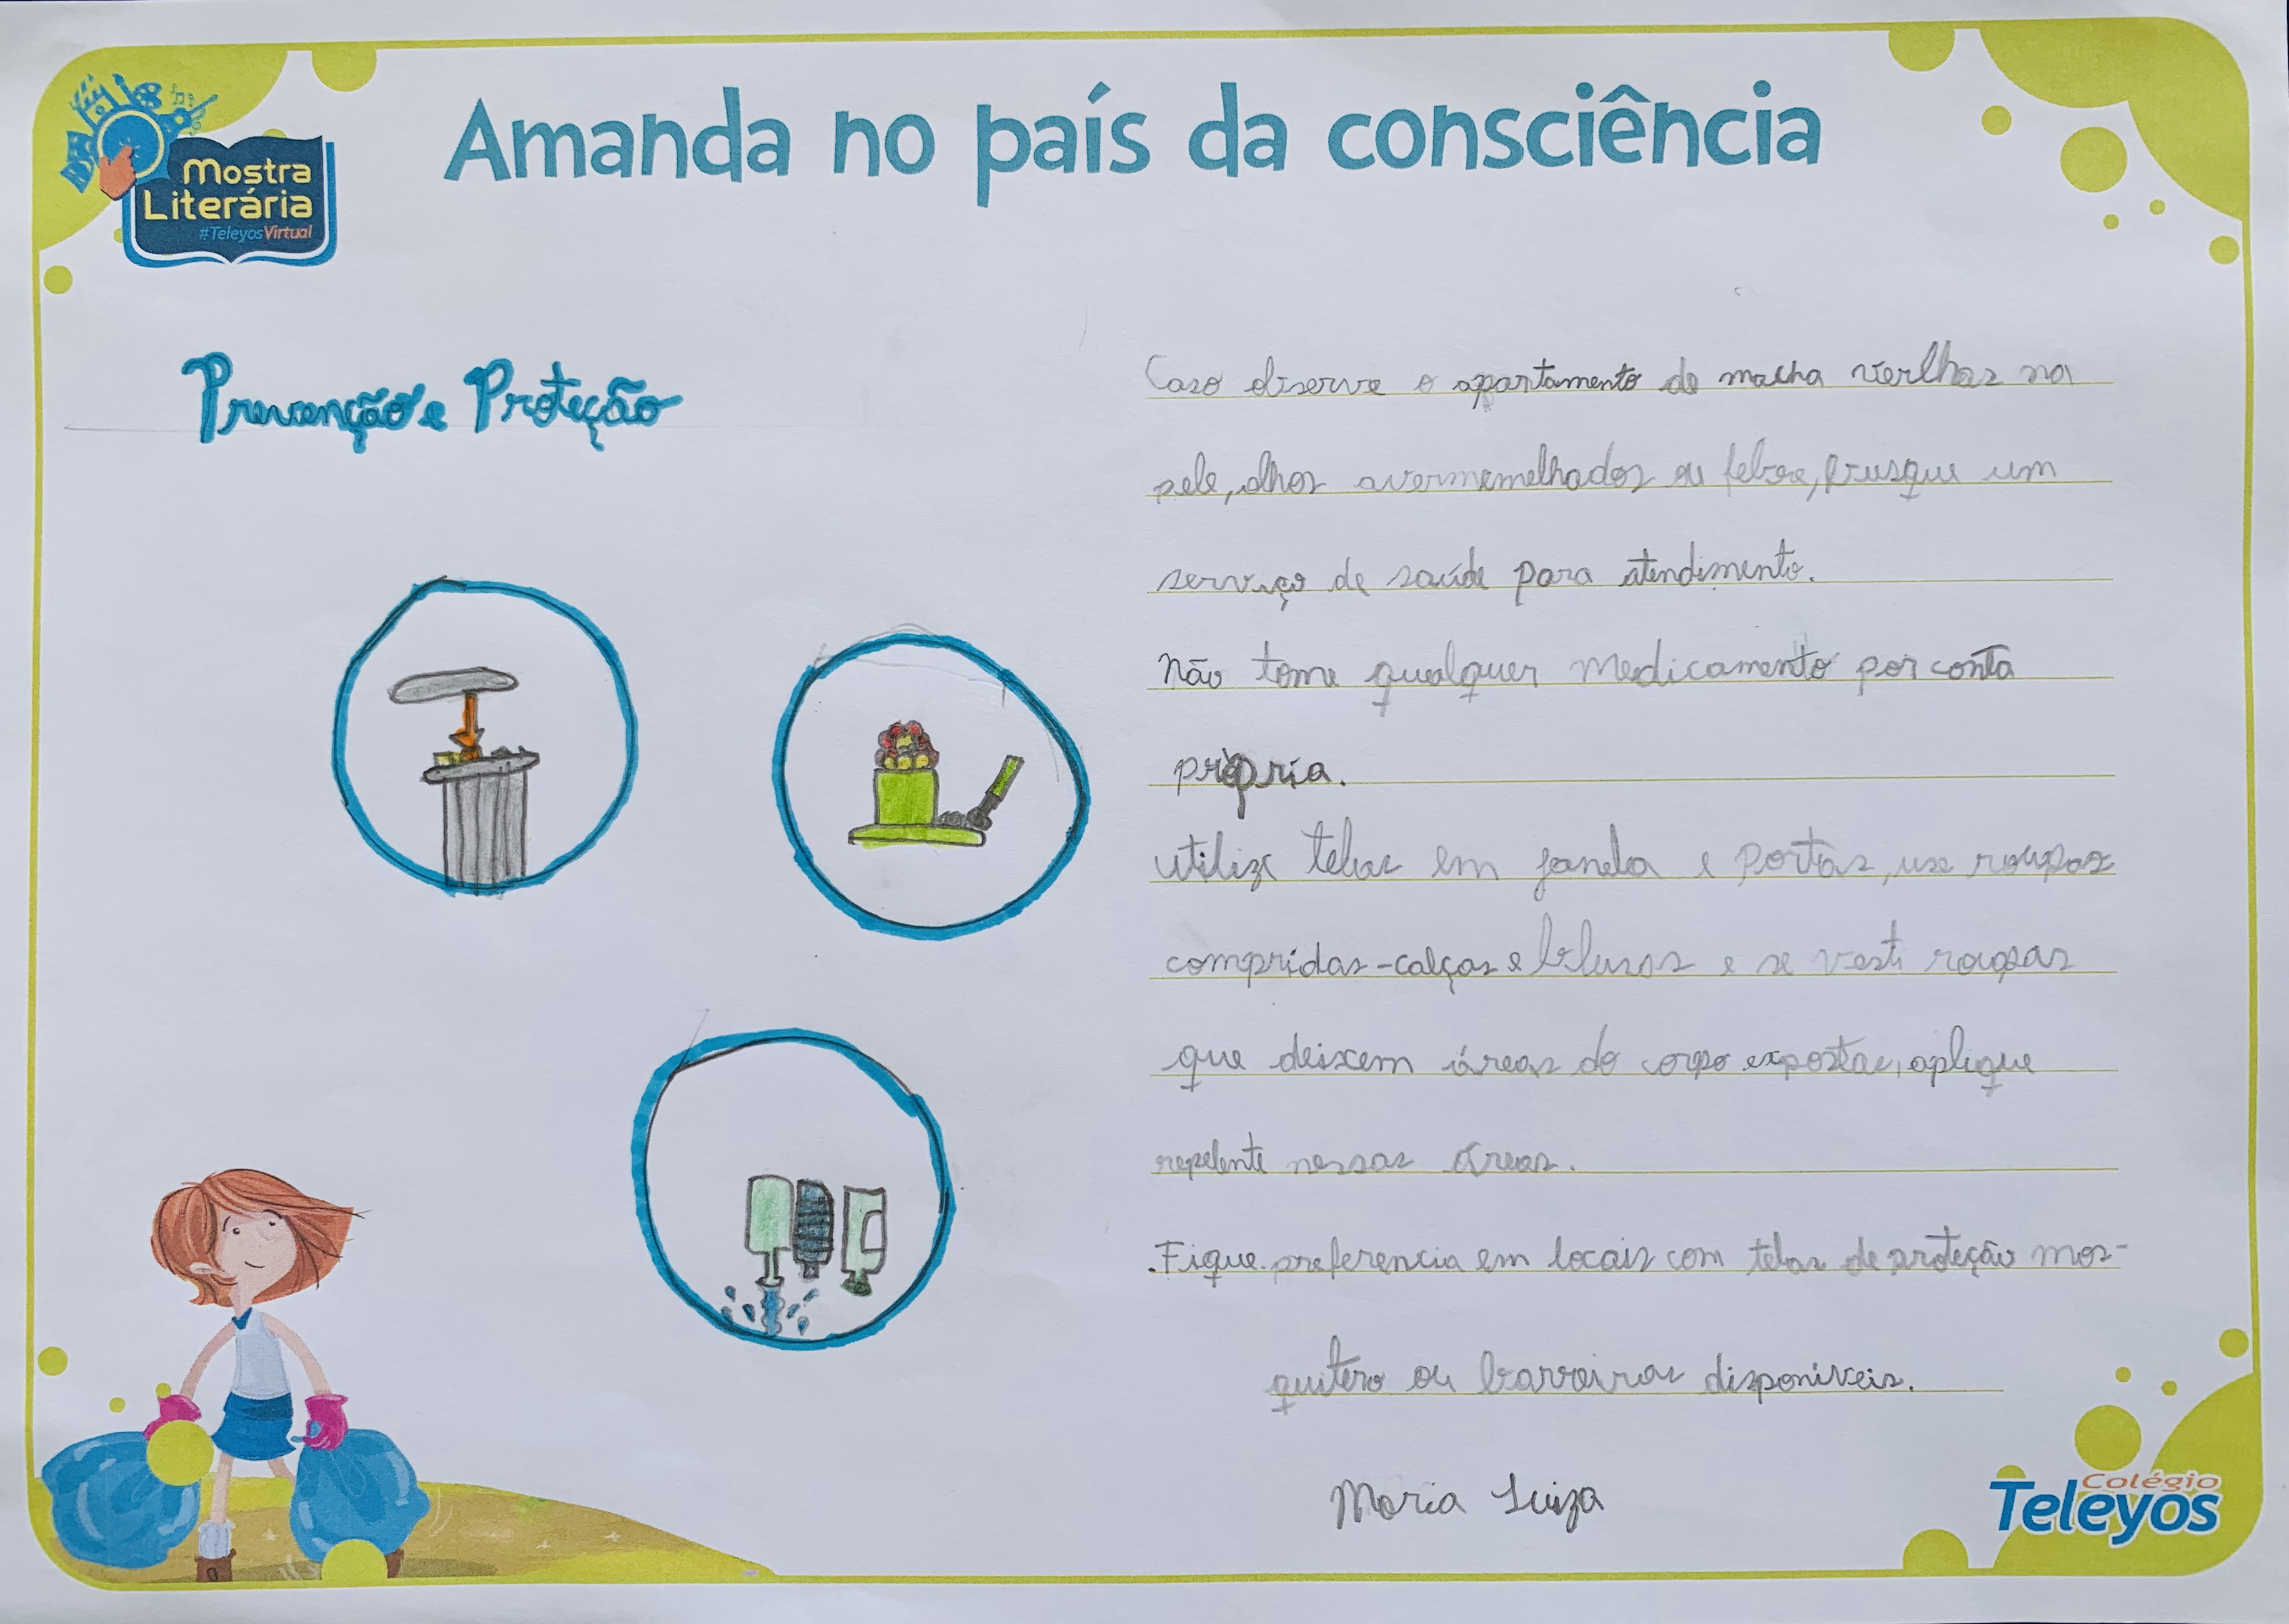 Amanda no país da consciência
Mostra
Literária
#TeleyosVirtual
Prevenção e Proteção
Caso diserve o apartamento de macha vierlhas na
pele, olhos avermemelhados ou febre, busque um
serviço de saúde para atendimento.
Não tome qualquer medicamento por conta
própria.
utilize telas em janela e portas, use roupas
compridas-calças e blusas e se vesti roupas
que deixem áreas do corpo expostas, aplique
repelente nessas áreas.
.Fique preferencia em locais com telas de proteção mos-
quitero ou barreiras disponiveis.
Maria Luiza
Colégio
Teleyos